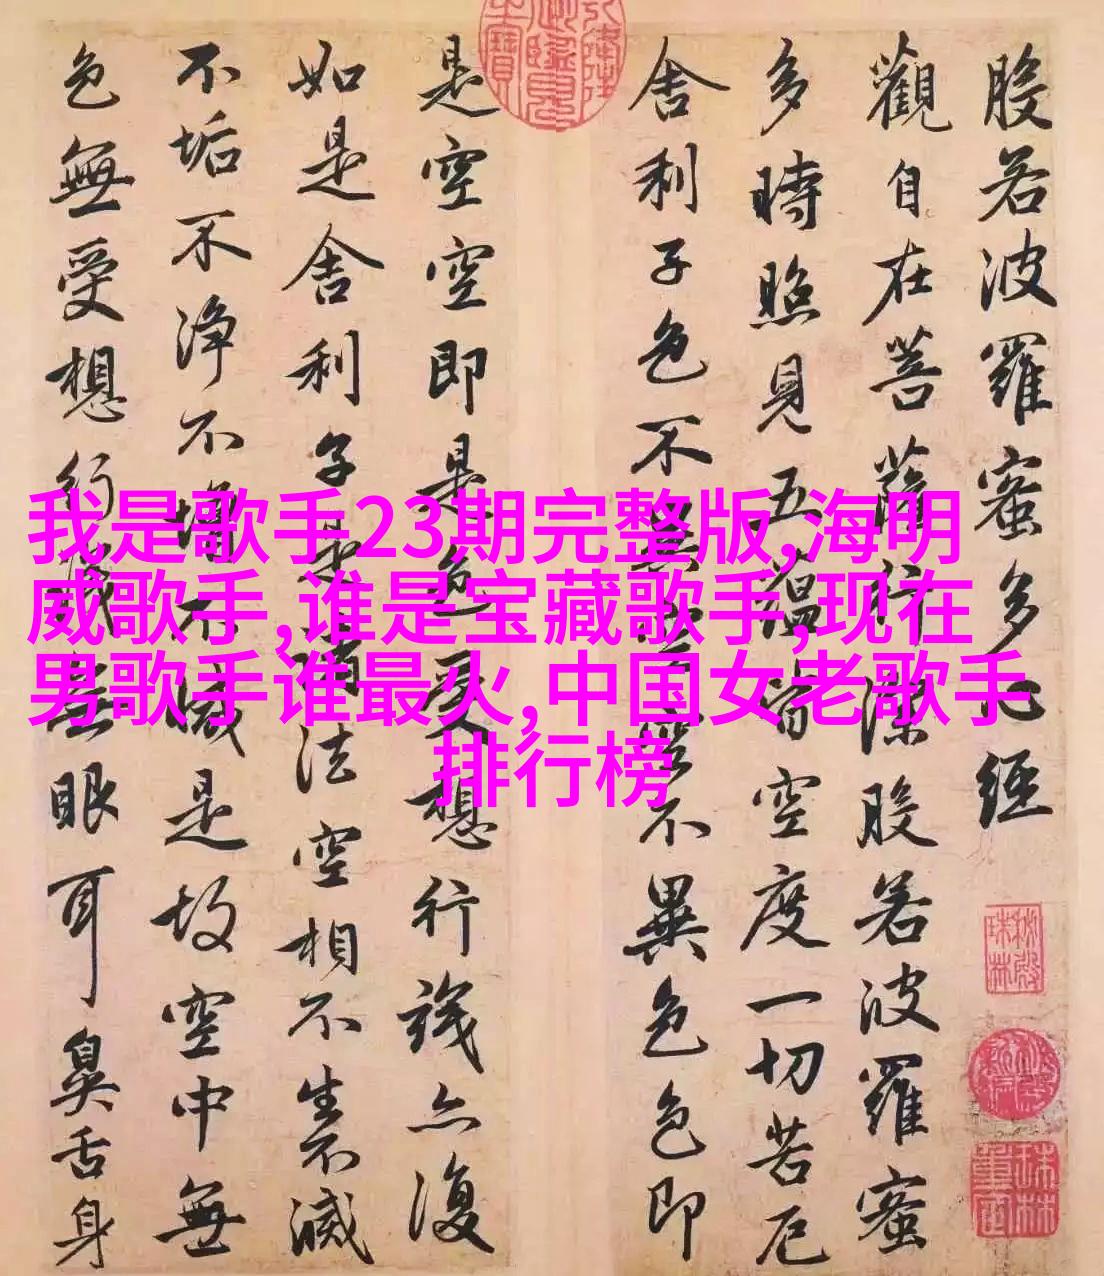 我是歌手23期完整版,海明
威歌手,谁是宝藏歌手,现在
男歌手谁最火,中国女老歌手
排行榜
般若波羅蜜多心經
觀自在菩薩行深般若波羅蜜
多時照見五蘊皆空度一切苦厄
舍利子色不異空空不異色色即
是空空即是色受想行識亦復
如是舍利子是諸法空相不生不滅
不垢不淨不增不減是故空中無
色無受想行識無眼耳鼻舌身